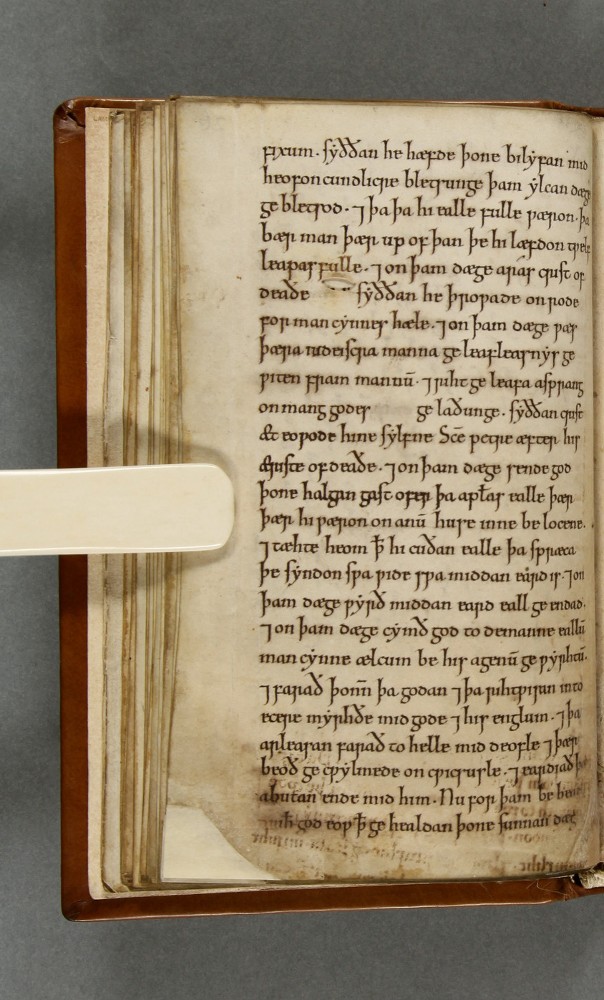 fixum. syððan he hæfde þone bilyfan mid
heofoncundlicre bletsunge þam ylcan dæge
ge bletsod. ⁊ þa þa hi ealle fulle wæron. þa
bær man þær up of þan þe hi læfdon twelf
leapas fulle. ⁊ on þam dæge aras crist of
deaðe syððan he þrowade on rode
for man cynnes hæle. ⁊ on þam dæge wæs
þæra iudeiscra manna ge leafleasnys ge
witen fram mannū. ⁊ riht ge leafa asprang
on mang godes ge laðunge. syððan crist
æt eowode hine sylfne Sc̄e petre æfter his
æriste of deaðe. ⁊ on þam dæge sende god
þone halgan gast ofer þa apƚas ealle þær
þær hi wæron on anū huse inne be locene.
⁊ tæhte heom ꝥ hi cuðan ealle þa spræca
þe syndon swa wide swa middan eard is. ⁊ on
þam dæge wyrð middan eard eall ge endad.
⁊ on þam dæge cymð god to demanne eallū
man cynne ælcum be his agenū ge wyrhtū.
⁊ farað þonn̄ þa godan ⁊ þa rihtwisan into
ecere myrhðe mid gode ⁊ his englum. ⁊ þa
arleasan farað to helle mid deofle ⁊ þær
beoð ge cwylmede on cwicsusle. ⁊ eardiað
abutan ende mid him. Nu for þam be
god eow ꝥ ge healdan þone sunnan dæg